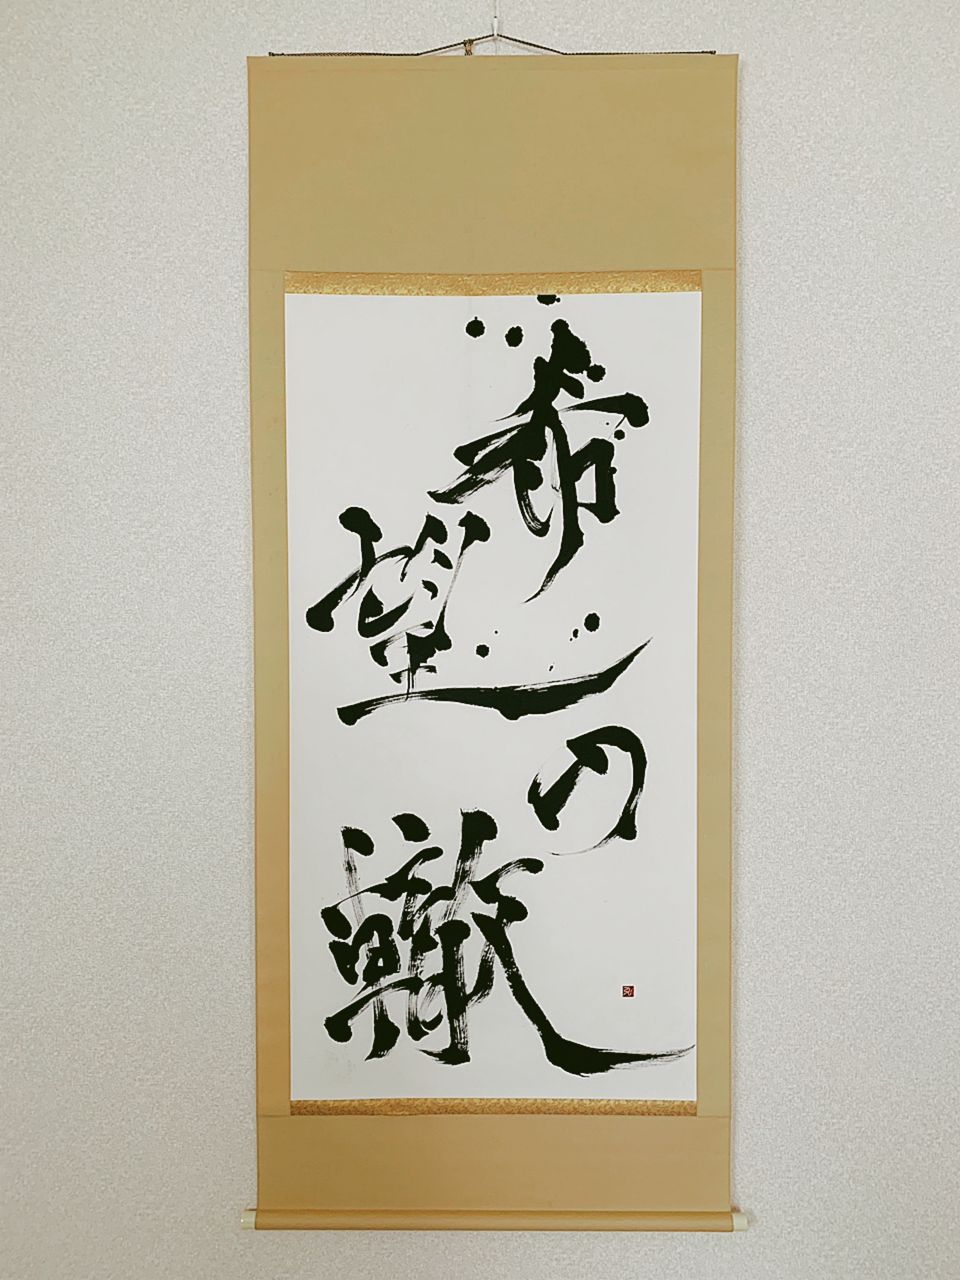 希望の轍